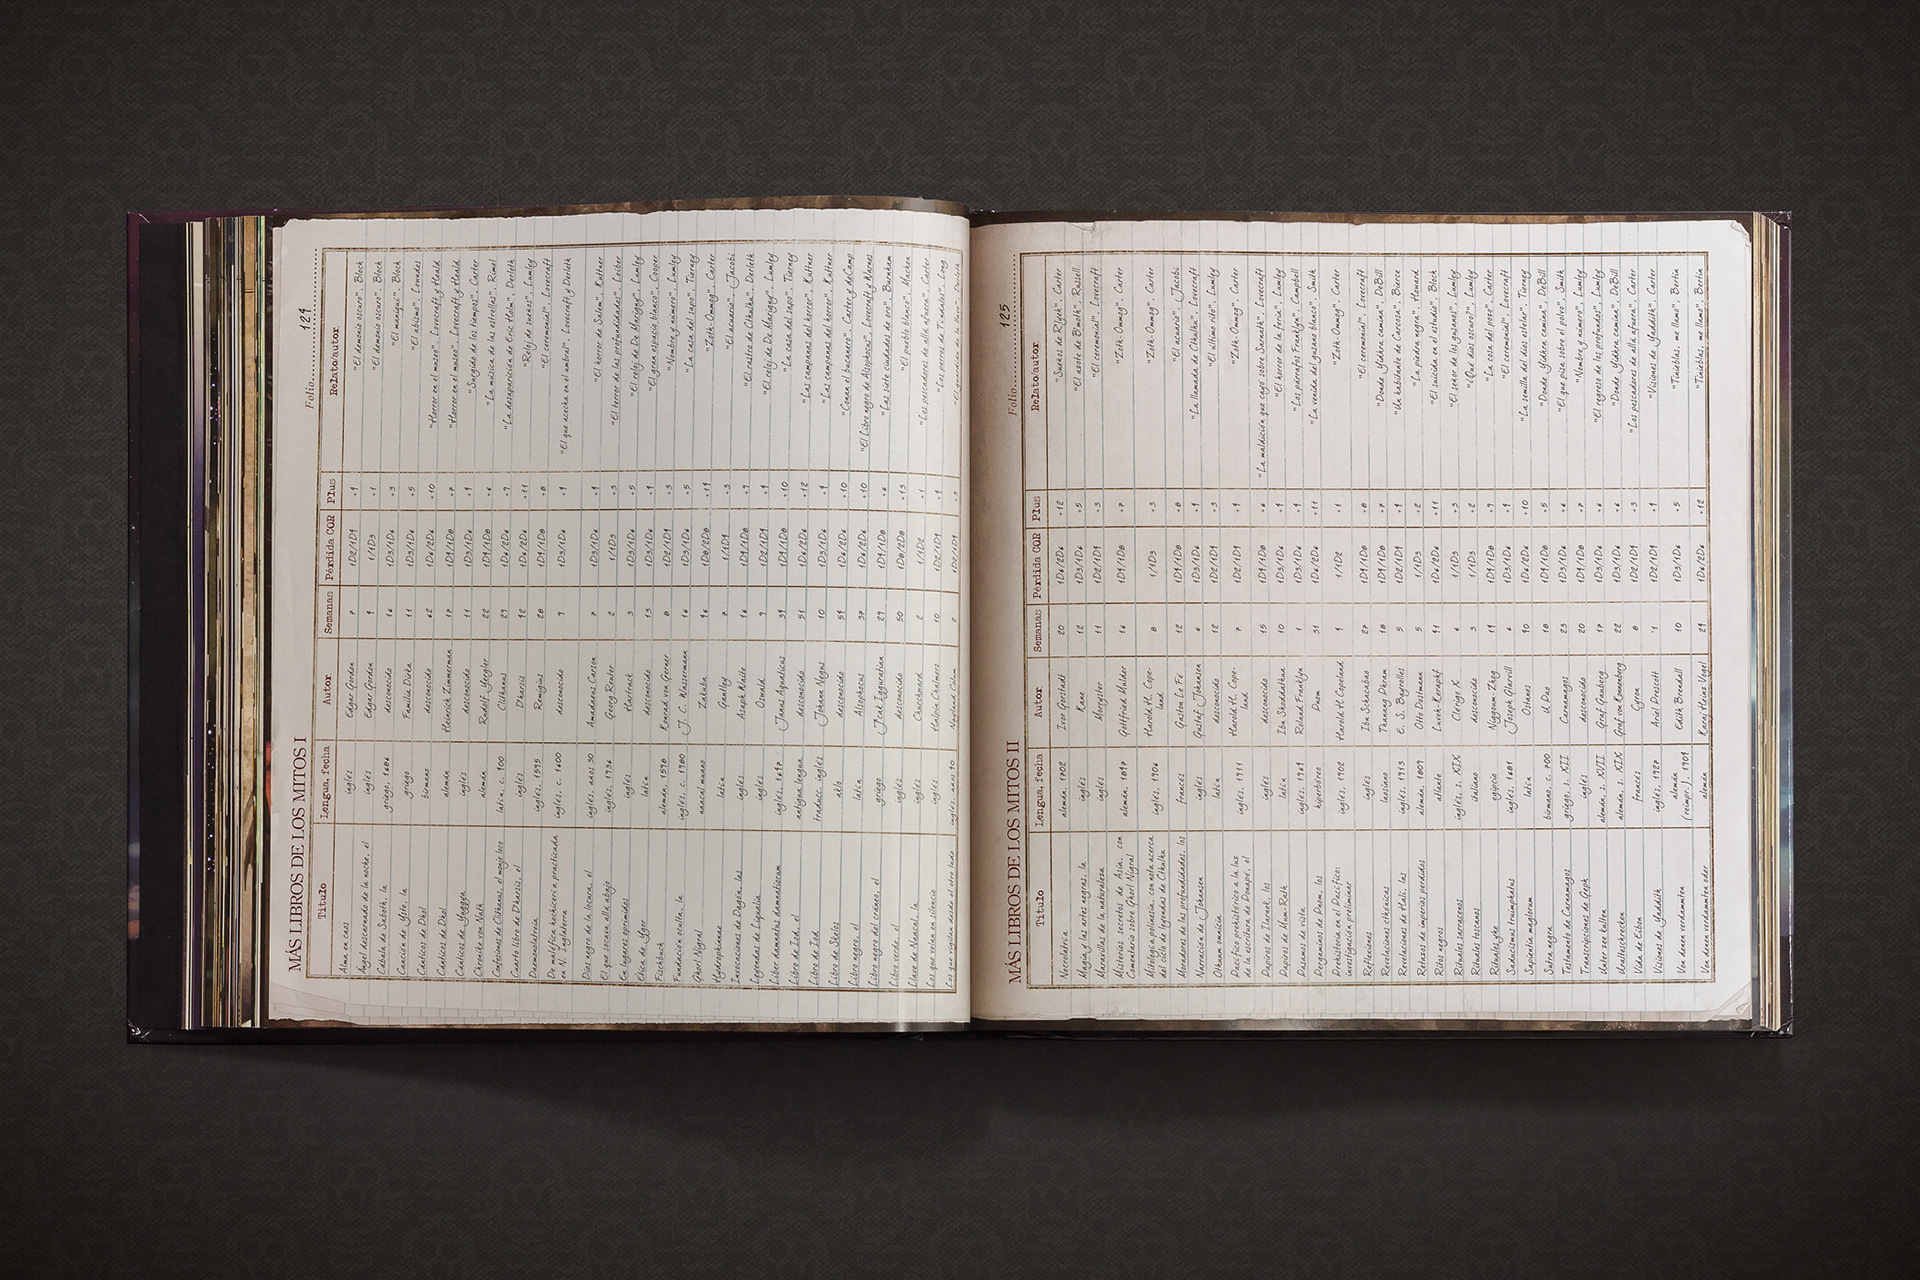 MÁS LIBROS DE LOS MITOS I
Folio 124
Título Lengua, fecha Autor Semanas Pérdida COR Plus Relato/autor
Alma en caos inglés Edgar Gordon 7 1D2/1D4 +4 "El demonio oscuro", Bloch
Ángel descarnado de la noche, el inglés Edgar Gordon 4 1/1D3 +1 "El demonio oscuro", Bloch
Cábala de Saboth, la griego, 1686 desconocido 16 1D3/1D6 +3 "El maniquí", Bloch
Canción de Yste, la griego Familia Dirka 11 1D3/1D6 +5 "El abismo", Lowndes
Cánticos de Dhol birmano desconocido 62 1D6/2D6 +10 "Horror en el museo", Lovecraft y Heald
Cánticos de Dhol alemán Heinrich Zimmerman 17 1D4/1D8 +7 "Horror en el museo", Lovecraft y Heald
Cánticos de inglés desconocido 11 1D3/1D6 +4 "Surgida de los tiempos", Carter
Chronike von Nath alemán Rudolf Yergler 22 1D4/1D8 +6 "La música de las estrellas", Rimel
Confesiones de Clithanus, el monje loco latín, c. 400 Clithanus 29 1D6/2D6 +9 "La desaparición de Eric Holm", Derleth
Cuarto libro de D'harsis, el inglés Dharsis 42 1D6/2D6 +11 "Reloj de sueños", Lumley
Daemonolatreia inglés, 1595 Remigius 28 1D4/1D8 +8 "El ceremonial", Lovecraft
De maléfica hechicería practicada
en N. Inglaterra inglés, c. 1600 desconocido 9 1D3/1D6 +4 "El que acecha en el umbral", Lovecraft y Derleth
Dios negro de la locura, el inglés, años 30 Amadaeus Carson 7 1D3/1D6 +4 "El horror de Salem", Kuttner
El que socava allá abajo inglés, 1936 Georg Reuter 2 1/1D3 +3 "El terror de las profundidades", Leiber
En lugares oprimidos inglés Hartrack 3 1D3/1D6 +5 "El reloj de De Marigny", Lumley
Ética de Ygor latín desconocido 13 1D3/1D6 +4 "El gran espacio blanco", Copper
Fischbuch alemán, 1598 Konrad von Gerner 8 1D2/1D4 +3 "Nombre y número", Lumley
Fundación oculta, la inglés, c. 1980 J. C. Wassermann 16 1D3/1D6 +5 "La casa del sapo", Tierney
Ghorl Nigral naacal muano Zkauba 46 1D8/2D8 +14 "Zoth-Ommog", Carter
Hydrophinnae latín Gantley 7 1/1D4 +3 "El acuario", Jacobi
Invocaciones de Dagón, las inglés Asaph Waite 16 1D4/1D8 +9 "El rastro de Cthulhu", Derleth
Legendas de Liqualia inglés Oswald 9 1D2/1D4 +4 "El reloj de De Marigny", Lumley
Liber damnatus damnatiorum inglés, 1647 Janus Aquaticus 34 1D4/1D8 +10 "La casa del sapo", Tierney
Libro de Iod, el antigua lengua desconocido 51 1D6/2D6 +12 "Las campanas del horror", Kuttner
Libro de Iod traducc. inglés Johann Negus 10 1D3/1D6 +4 "Las campanas del horror", Kuttner
Libro de Skelos aklo desconocido 54 1D6/2D6 +10 "Conan el bucanero", Carter y de Camp
Libro negro, el latín Alsophocus 37 1D6/2D6 +10 "El Libro negro de Alsophocus", Lovecraft y Warnes
Libro negro del cráneo, el griego 29 1D4/1D8 +6 "Las siete ciudades de oro", Burnham
Libro verde, el inglés desconocido 50 1D8/2D8 +13 "El pueblo blanco", Machen
Llave de Nuncul, la inglés 2 1/1D2 +1 "Los pescadores de allá afuera", Carter
Los que velan en silencio inglés Halpin Chalmers 10 1D2/1D4 +4 "Los perros de Tíndalos", Long
Los que vigilan desde el otro lado inglés, años 90 2 1D2/1D4 +3
MÁS LIBROS DE LOS MITOS II
Folio 125
Título Lengua, fecha Autor Semanas Pérdida COR Plus Relato/autor
Necrolatría alemán, 1702 Ivor Gorstadt 20 1D6/2D6 +12 "Sueños de R'lyeh", Carter
Magia y las artes negras, la inglés Kane 12 1D3/1D6 +5 "El azote de B'moth", Russell
Maravillas de la naturaleza inglés Moryster 11 1D2/1D4 +3 "El ceremonial", Lovecraft
Misterios secretos de Asia, con
Comentario sobre Ghorl Nigral alemán, 1847 Gottfried Mulder 16 1D4/1D8 +7 "Zoth-Ommog", Carter
Mitología polinesia, con nota acerca
del ciclo de leyendas de Cthulhu inglés, 1906 Harold H. Copeland 8 1/1D3 +3 "Zoth-Ommog", Carter
Moradores de las profundidades, los francés Gaston Le Fe 12 1D4/1D8 +8 "El acuario", Jacobi
Narración de Johansen inglés Gustaf Johansen 6 1D3/1D6 +4 "La llamada de Cthulhu", Lovecraft
Othuum omnicia latín desconocido 12 1D2/1D4 +3 "El último rito", Lumley
Pacífico prehistórico a la luz
de la escritura de Ponapé, el inglés, 1911 Harold H. Copeland 7 1D2/1D4 +4 "Zoth-Ommog", Carter
Papiros de Ilarnek, los inglés desconocido 15 1D4/1D8 +6 "La maldición que cayó sobre Sarnath", Lovecraft
Papiros de Mum-Rath latín Ibn Shoddathua 10 1D3/1D6 +4 "El horror de la feria", Lumley
Pasamos de vista inglés, 1964 Roland Franklyn 1 1D3/1D6 +4 "Los párrafos Franklyn", Campbell
Pergaminos de Pnom, los hiperbóreo Pnom 31 1D6/2D6 +11 "La venida del gusano blanco", Smith
Prehistoria en el Pacífico:
investigación preliminar inglés, 1902 Harold H. Copeland 4 1/1D2 +1 "Zoth-Ommog", Carter
Reflexiones inglés Ibn Schacabao 27 1D4/1D8 +8 "El ceremonial", Lovecraft
Revelaciones cthónicas laosiano Thanang Phram 18 1D4/1D8 +7 "Donde Yidhra camina", DeBill
Revelaciones de Hali, las inglés, 1913 E. S. Bayrolles 5 1D2/1D4 +4 "Un habitante de Carcosa", Bierce
Retazos de imperios perdidos alemán, 1809 Otto Dostmann 5 1/1D3 +2 "La piedra negra", Howard
Ritos negros atlante Luveh-Keraphf 41 1D6/2D6 +11 "El suicida en el estudio", Bloch
Rituales sarracenos inglés, s. XIX Clérigo X 6 1/1D3 +3 "El señor de los gusanos", Lumley
Rituales toscanos italiano desconocido 3 1/1D3 +2 "¿Qué dios oscuro?", Lumley
Rituales yhe egipcio Niggoum-Zhog 14 1D4/1D8 +9 "La cosa del pozo", Carter
Saducismus triumphatus inglés, 1681 Joseph Glanvill 6 1D3/1D6 +4 "El ceremonial", Lovecraft
Sapientia maglorum latín Ostanes 40 1D6/2D6 +10 "La semilla del dios estelar", Tierney
Sutra negra birmano, c. 700 U Pao 18 1D4/1D8 +5 "Donde Yidhra camina", DeBill
Testamento de Carnamagos griego, s. XIII Carnamagos 23 1D3/1D6 +6 "El que pisa sobre el polvo", Smith
Transcripciones de Geph inglés desconocido 20 1D4/1D8 +7 "Nombre y número", Lumley
Unter zee kulten alemán, s. XVII Graf Gauberg 17 1D3/1D6 +6 "El regreso de los profundos", Lumley
Uralteschrecken alemán, s. XIX Graf von Konnenberg 22 1D3/1D6 +6 "Donde Yidhra camina", DeBill
Vida de Eibon francés Cyron 8 1D2/1D4 +3 "Los pescadores de allá afuera", Carter
Visiones de Yaddith inglés, 1927 Ariel Prescott 1 1D2/1D4 +4 "Visiones de Yaddith", Carter
Von denen verdammten alemán (reimpr.), 1907 Edith Brendall 10 1D3/1D6 +5 "Tinieblas, me llamo", Bertin
Von denen verdammten oder alemán Karaj Heinz Vogel 24 1D6/2D6 +12 "Tinieblas, me llamo", Bertin